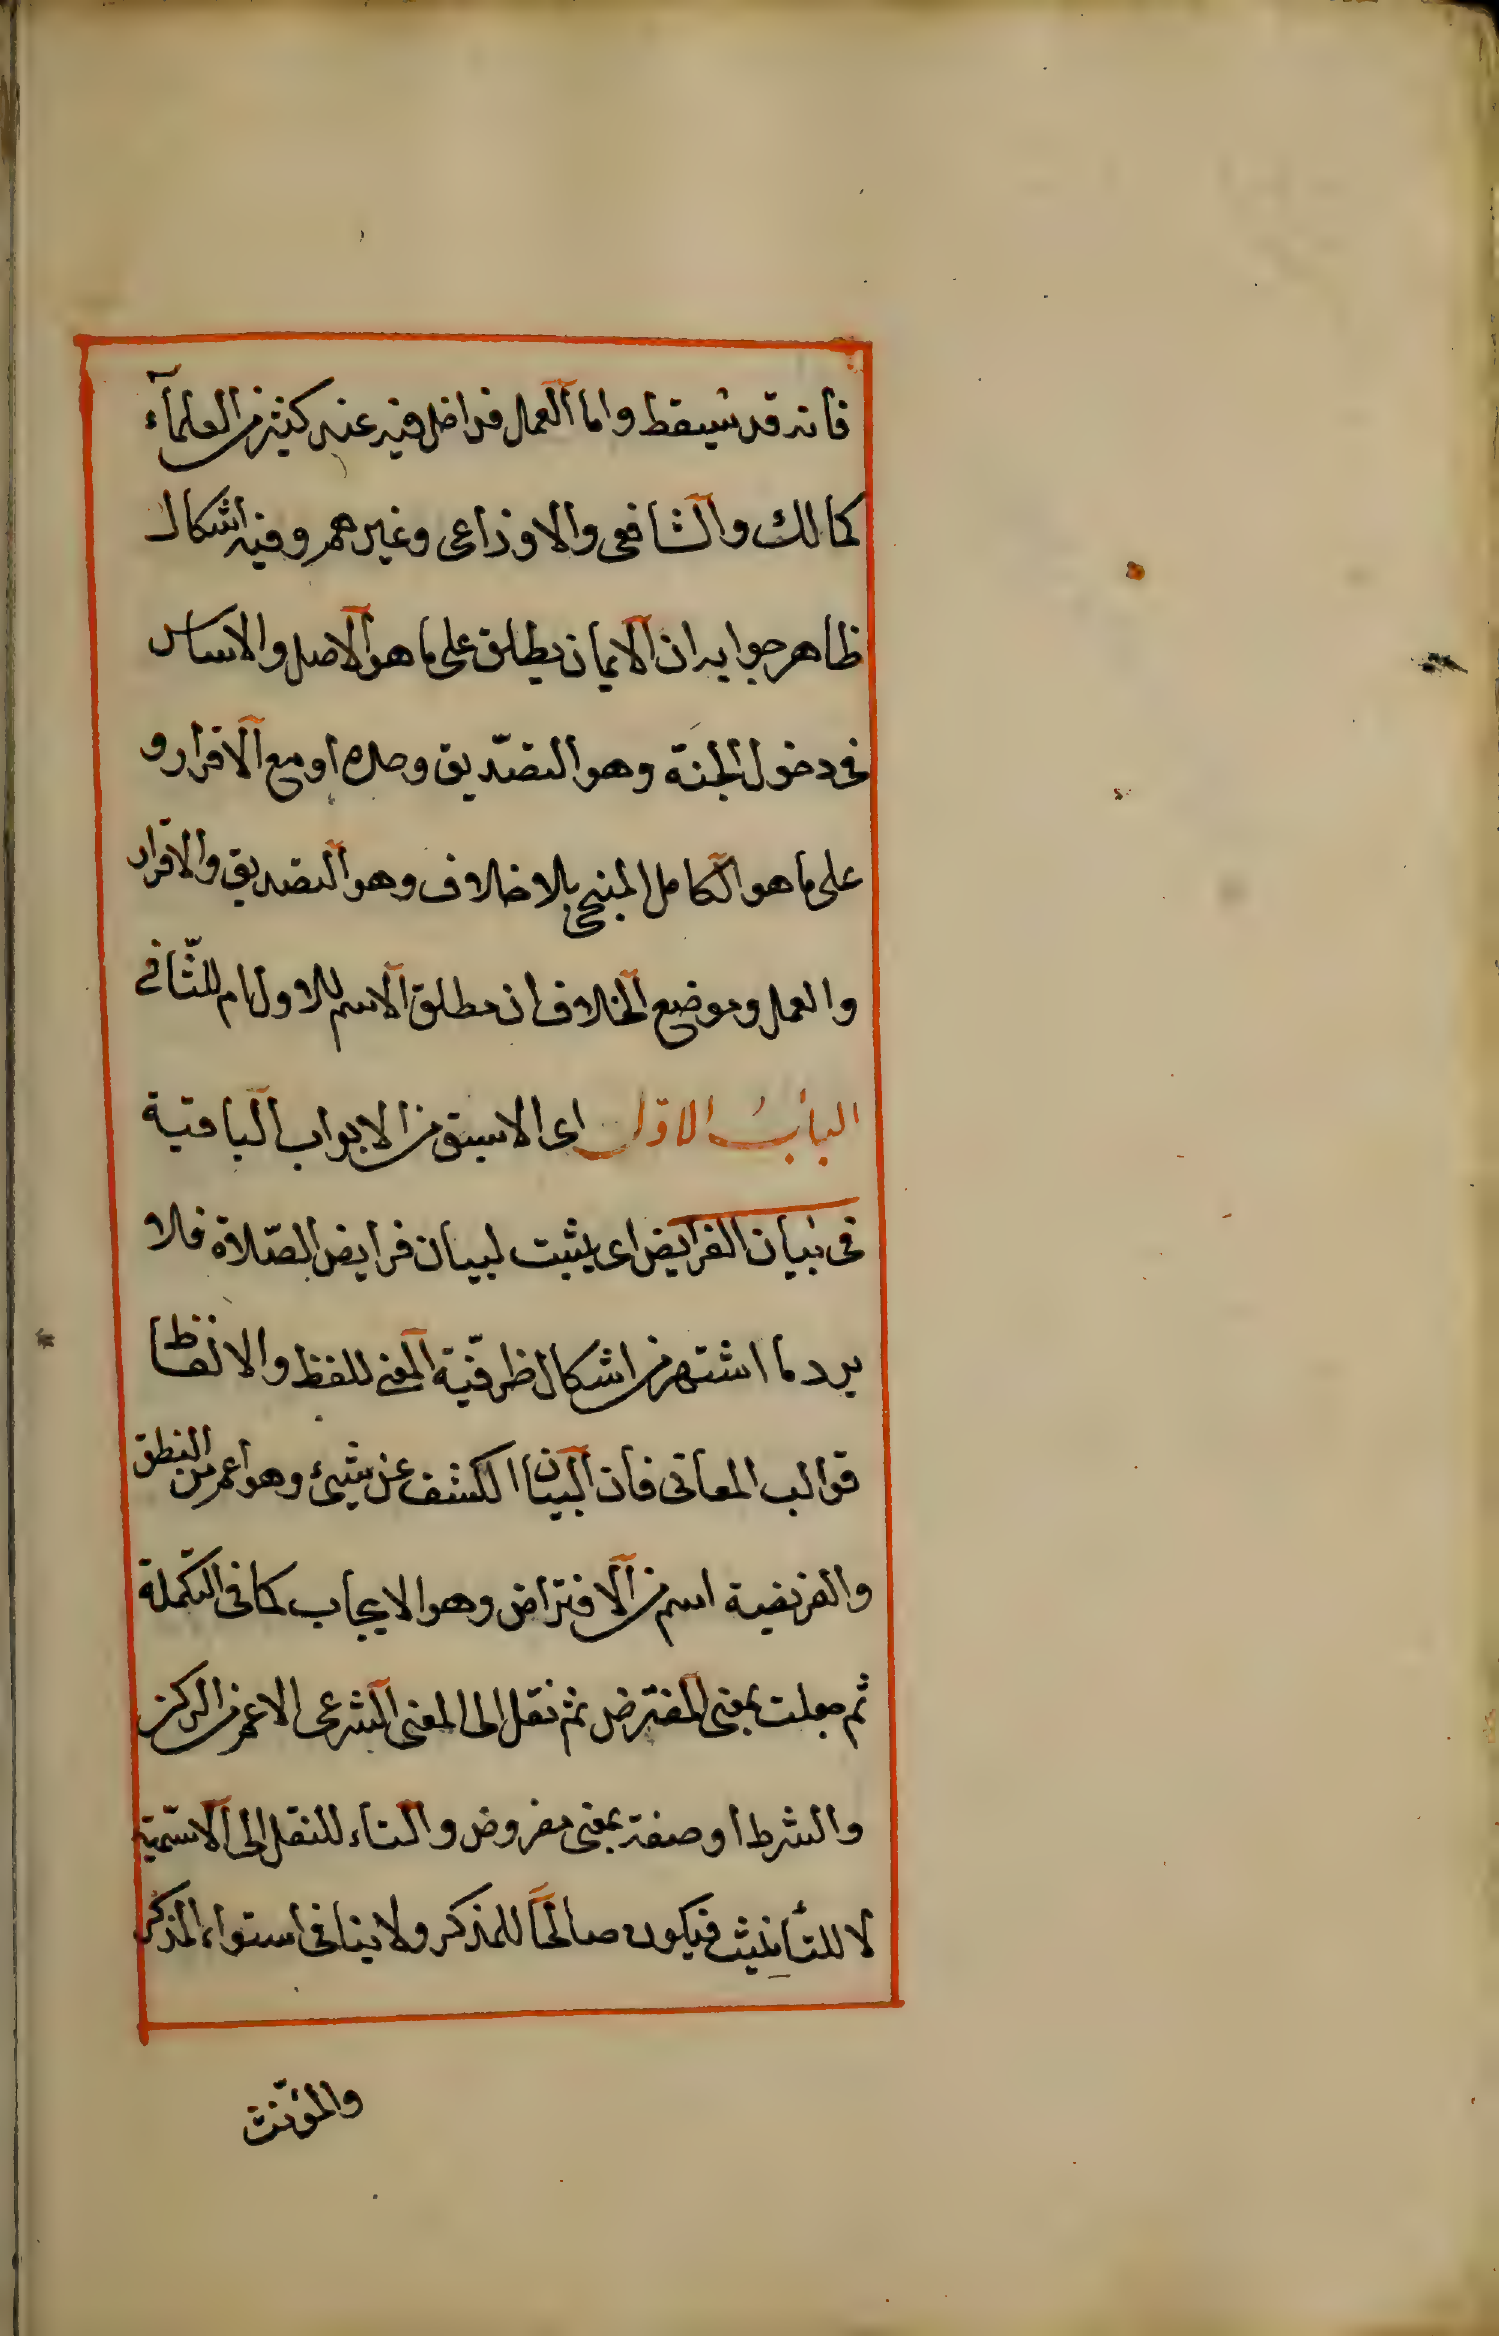 فانه قد سيقط واما العمل فداخل فيه عند كثير من العلمآء
كمالك والشافعى والاوزاعى وغيرهم وفيه اشكال
ظاهر جوابه ان الايمان يطلق على ما هو الاصل والاساس
فى دخول الجنة وهو التصديق وحده او مع الاقرار و
على ما هو الكامل المنجى بلا خلاف وهو التصديق والاقرار
والعمل وموضع الخلاف ان مطلق الاسم للاول ام للثّانى
البابُ الاوّل اى الاسبق من الابواب الباقية
فى بيان الفرايض اى يثبت لبيان فرايض الصّلاة فلا
يرد ما اشتهر من اشكال ظرفيّة المعنى للفظ والالفاظ
قوالب المعانى فان البيان الكشف عن شيئ وهو اعم من النطق
والفريضة اسم من الافتراض وهو الايجاب كما فى التكملة
ثم جعلت بمعنى المفترض ثم نقل الى المعنى الشرعى الاعم من الركن
والشرط او صفة بمعنى مفروض والتاء للنقل الى الاسّمية
لا للتأنيث فيكون صالحًا للمذكر ولا ينافى استواء المذكر
والمؤنّث